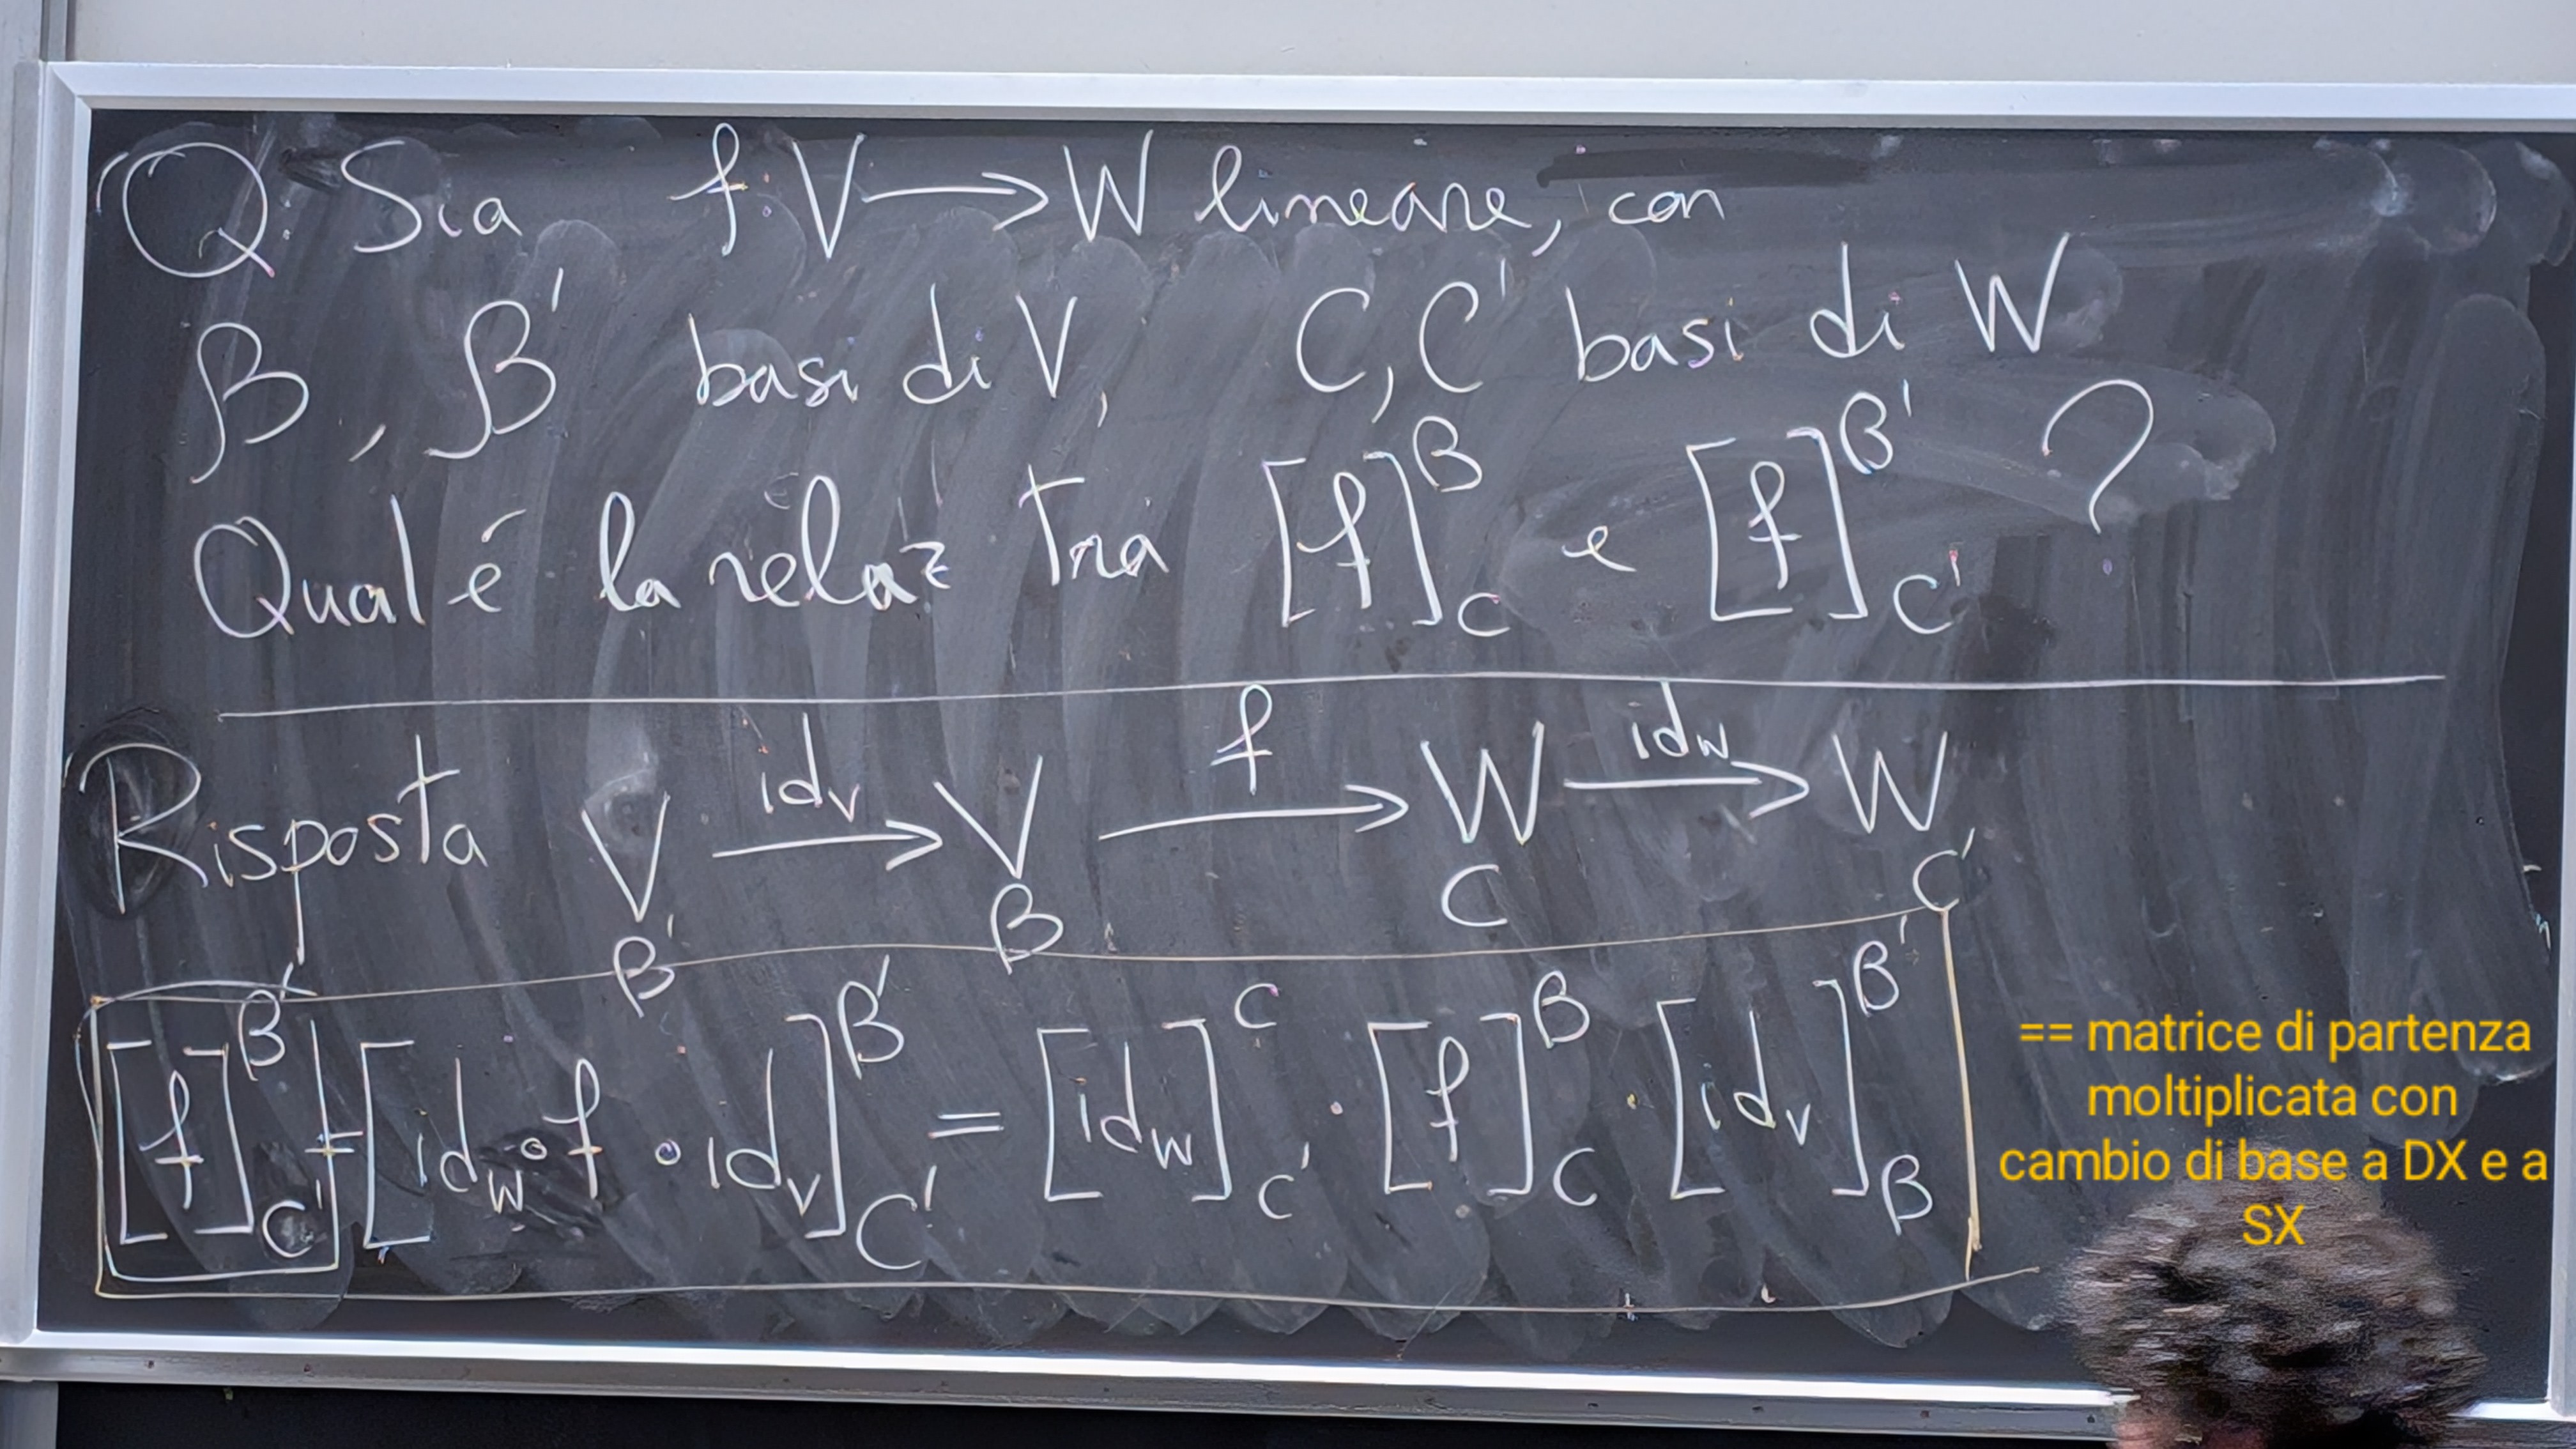 Q. Sia f: V → W lineare, con
B, B' basi di V, C, C' basi di W
Qual é la relaz tra [f]^B_C e [f]^B'_C' ?
Risposta V →^{id_V} V →^{f} W →^{id_W} W
B' B C C'
[f]^B'_C' = [id_W ∘ f ∘ id_V]^B'_C' = [id_W]^C_C' · [f]^B_C · [id_V]^B'_B
== matrice di partenza
moltiplicata con
cambio di base a DX e a
SX